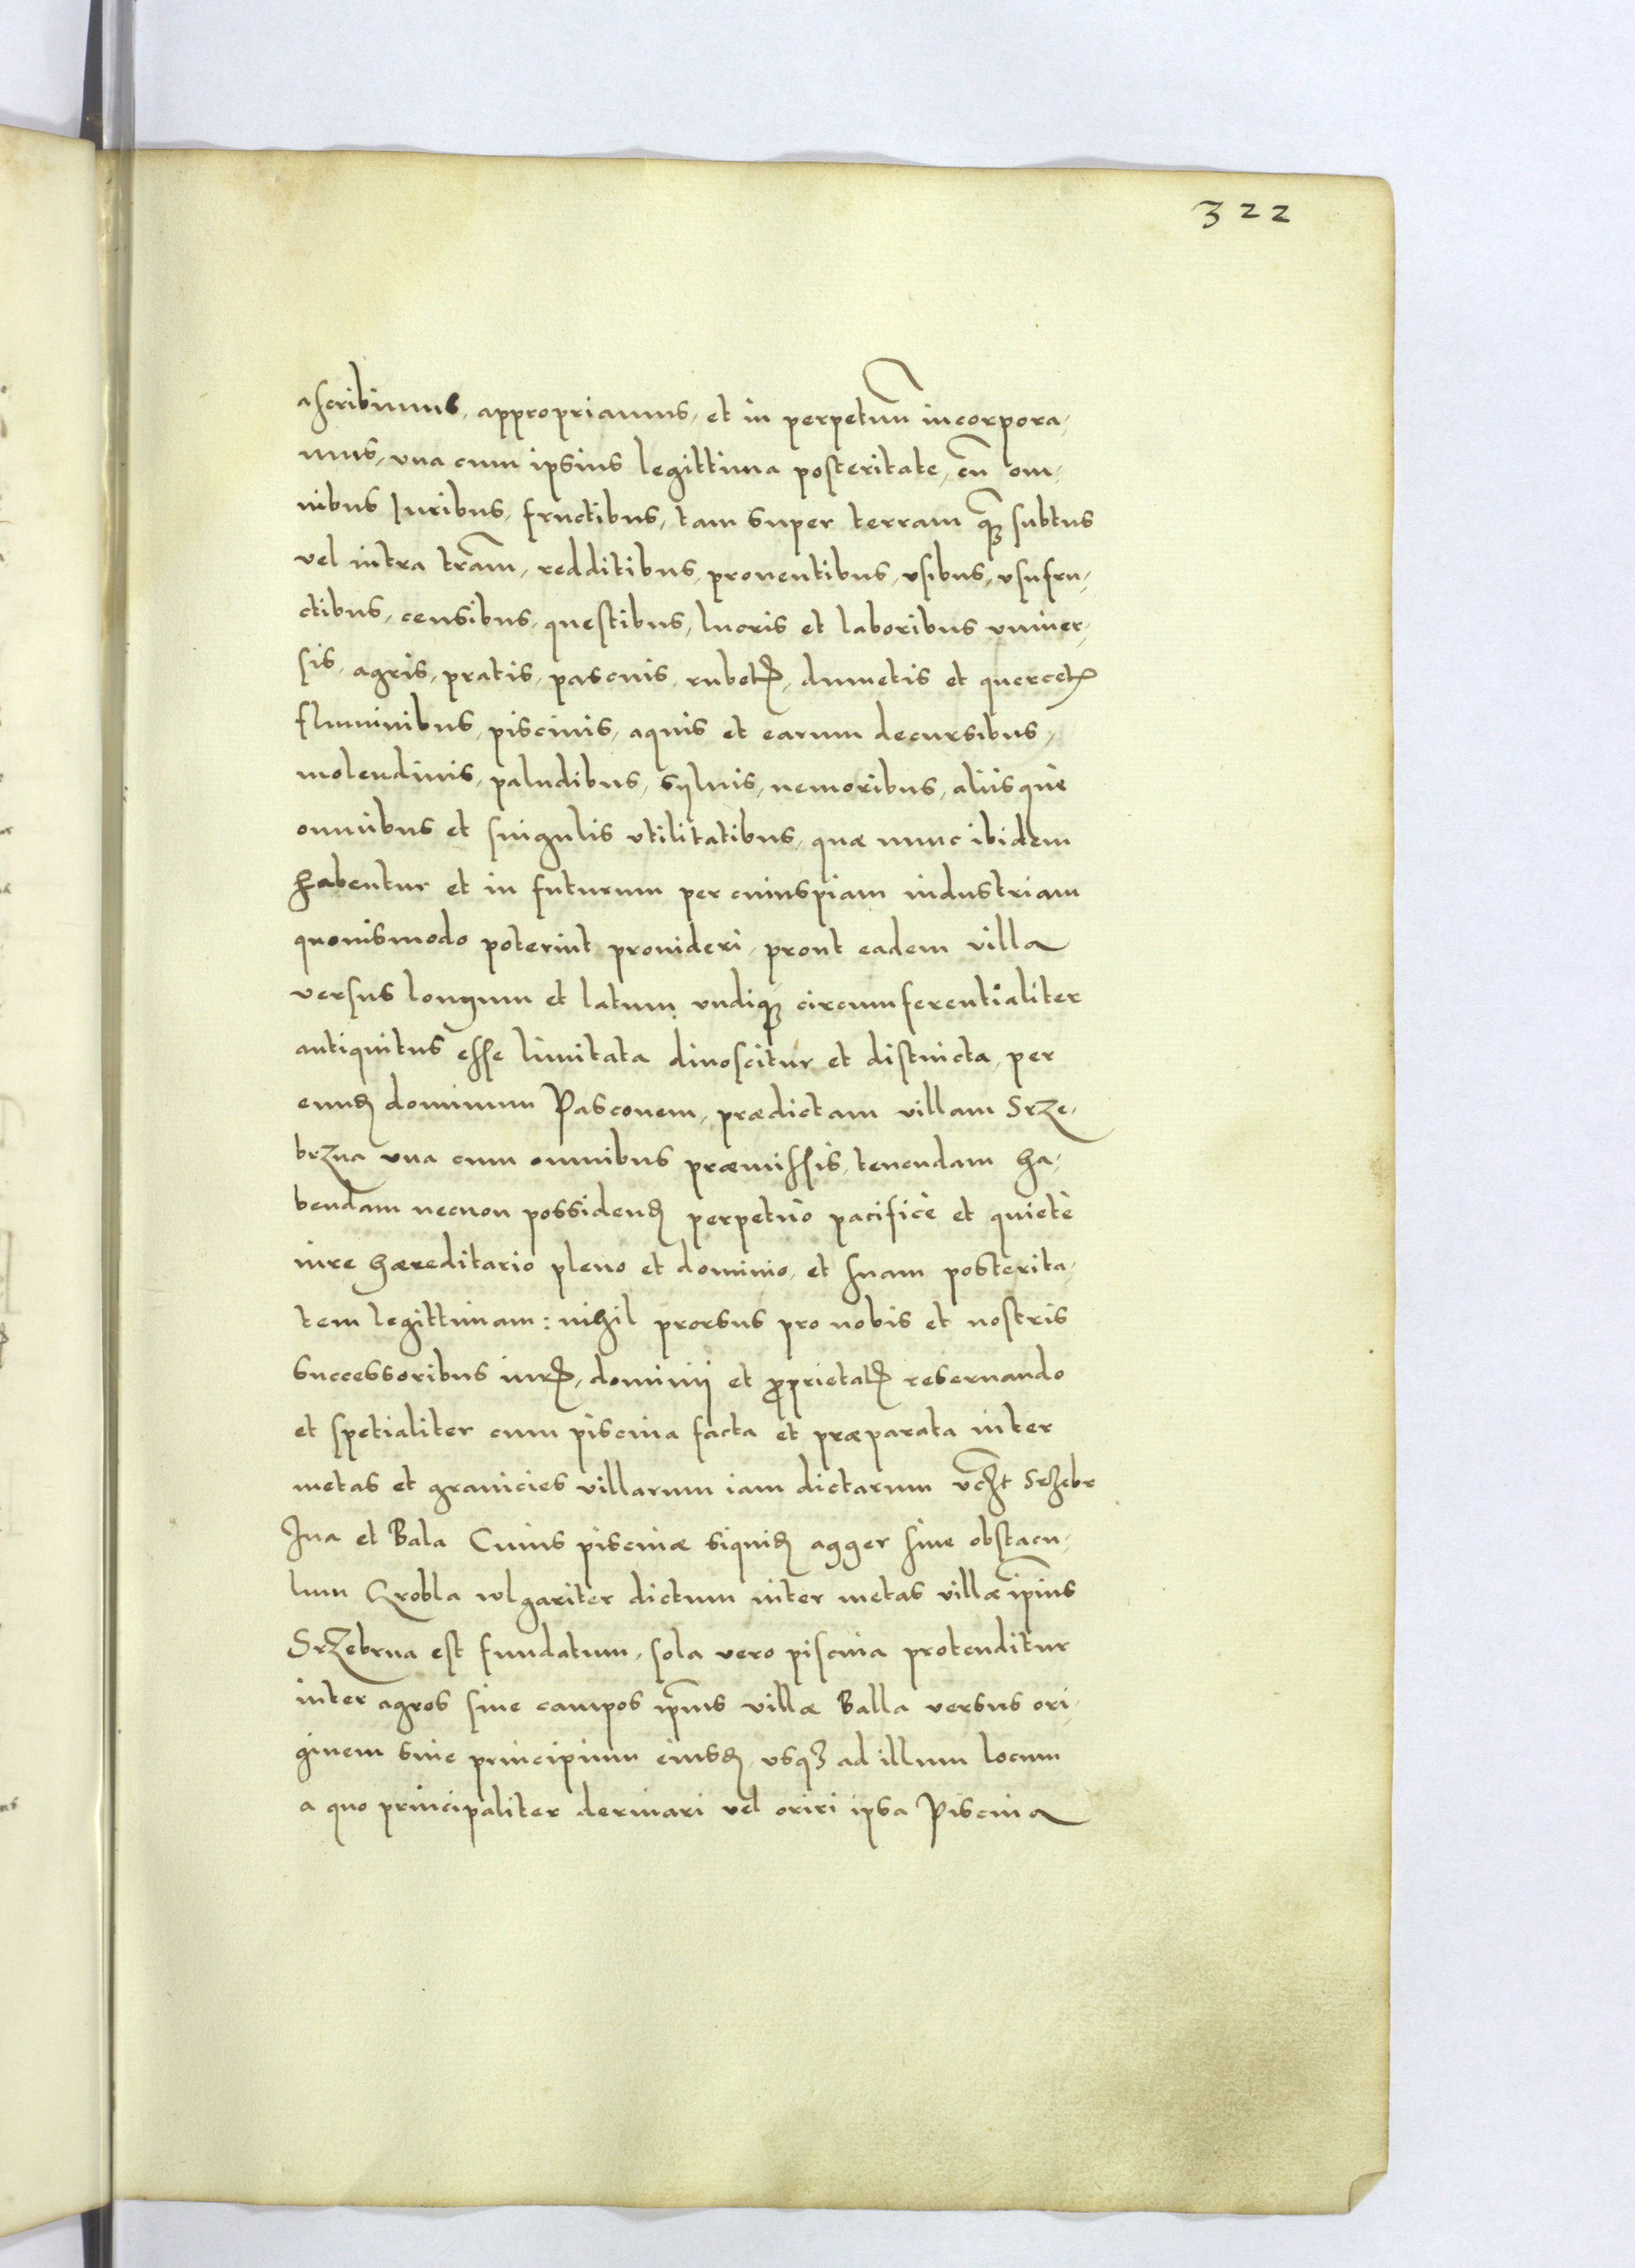 322
ascribimus, appropriamus, et in perpetuũ incorpora,
mus, vna cum ipsius legittima posteritate, cũ om,
nibus Iuribus, fructibus, tam super terram q̃ꝫ subtus
vel intra trãm, redditibus, prouentibus, vsibus, vsufru,
ctibus, censibus, questibus, lucris et laboribus vniuer,
sis, agris, pratis, pascuis, rubetꝭ, dumetis et quercetꝭ
fluminibus, piscinis, aquis et earum decursibus,
molendinis, paludibus, syluis, nemoribus, aliisque
omnibus et singulis vtilitatibus, quæ nunc ibidem
habentur et in futurum per cuiuspiam industriam
quouismodo poterint prouideri, prout eadem villa
versus longum et latum vndiqꝫ circumferentialiter
antiquitus esse limitata dinoscitur et distincta, per
eundꝫ dominum Pasconem, prædictam villam Srze,
brzna vna cum omnibus præmissis, tenendam ha,
bendam necnon possidendꝫ perpetuò pacificè et quietè
iure hæreditario pleno et dominio, et suam posterita,
tem legittimam: nihil prorsus pro nobis et nostris
successoribus iurꝭ, dominij et ꝓprietatꝭ reseruando
et spetialiter cum piscina facta et præparata inter
metas et granicies villarum iam dictarum vcꝫt Srzebr
zna et Bala Cuius piscinæ siquidꝫ agger siue obstacu,
lum Grobla wlgariter dictum inter metas villæ ip̃ius
Srzebrna est fundatum, sola vero piscina protenditur
inter agros siue campos ip̃ius villæ Balla versus ori,
ginem siue principium eiusdꝫ, vsqꝫ ad illum locum
a quo principaliter deriuari vel oriri ipsa Piscina